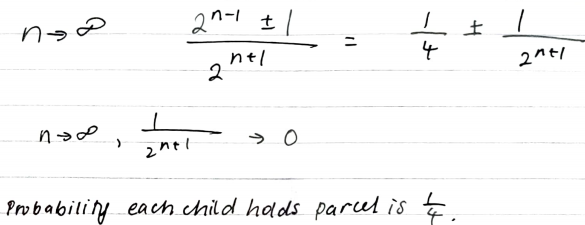 n→∞ (2^{n-1} ± 1)/2^{n+1} = 1/4 ± 1/2^{n+1}
n→∞, 1/2^{n+1} → 0
Probability each child holds parcel is 1/4.